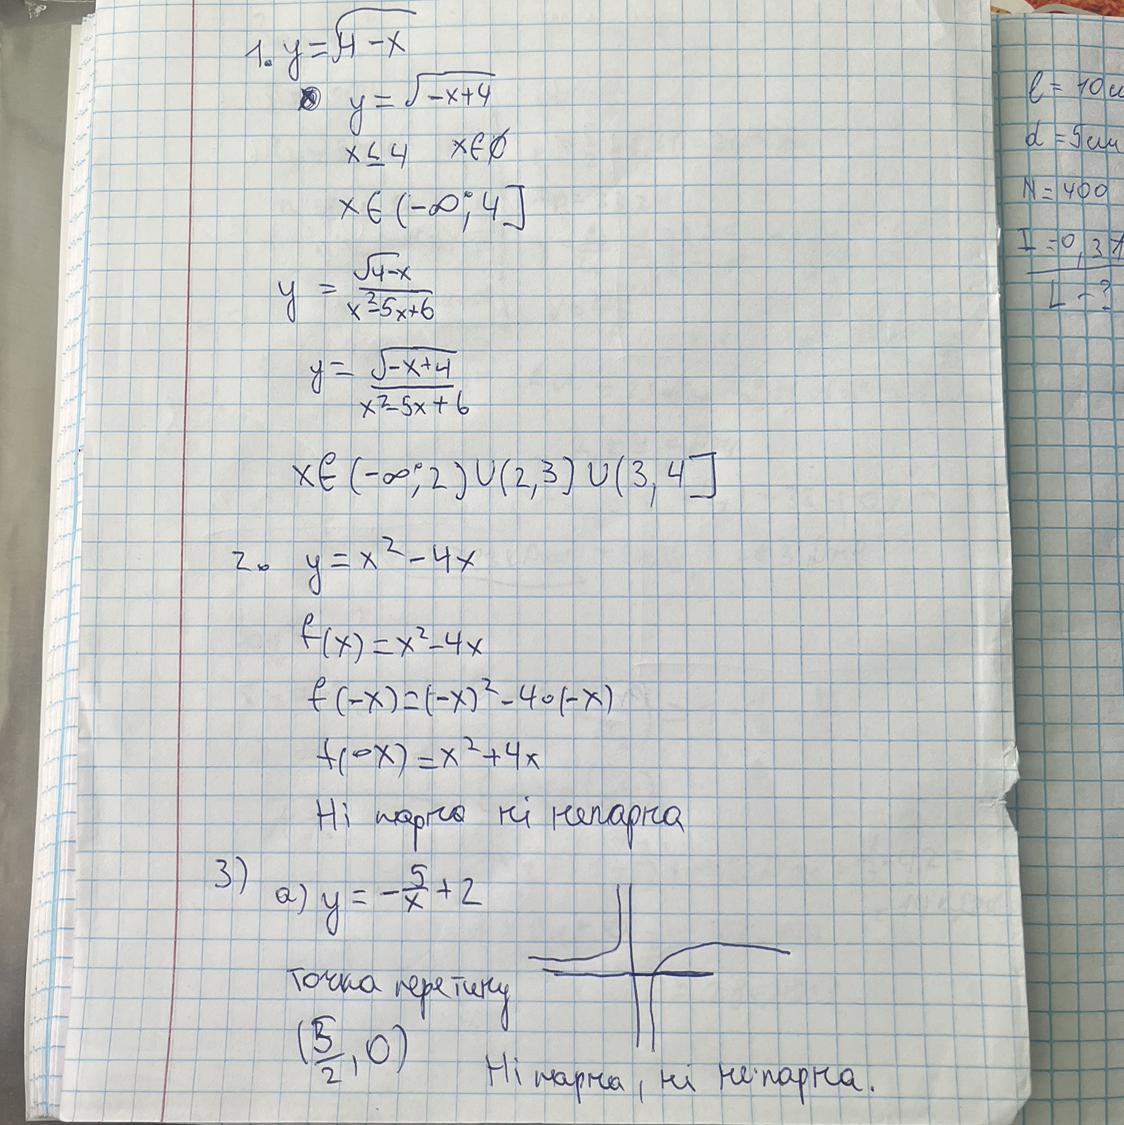 1. y = √4-x
y = √-x+4
x ≤ 4 x∈∅
x∈(-∞; 4]
y = √4-x / x²-5x+6
y = √-x+4 / x²-5x+6
x∈(-∞; 2)∪(2,3)∪(3,4]
2. y = x² - 4x
f(x) = x² - 4x
f(-x) = (-x)² - 4·(-x)
f(-x) = x² + 4x
Ні парна ні непарна
3) а) y = - 5/x + 2
точка перетину
(5/2, 0)
Ні парна, ні непарна.
l = 10 см
d = 5 см
N = 400
I = 0,3 А
L - ?